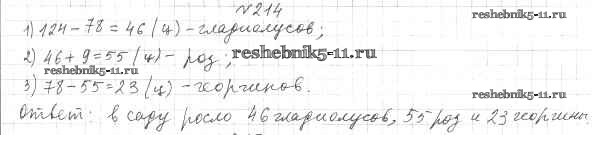 №214
1) 124-78=46 (ц)-гладиолусов;
reshebnik5-11.ru
2) 46+9=55 (ц)- роз;
reshebnik5-11.ru
reshebnik5-11.ru
3) 78-55=23 (ц)-георгинов.
reshebnik5-11.ru
Ответ: в саду росло 46 гладиолусов, 55 роз и 23 георгины.